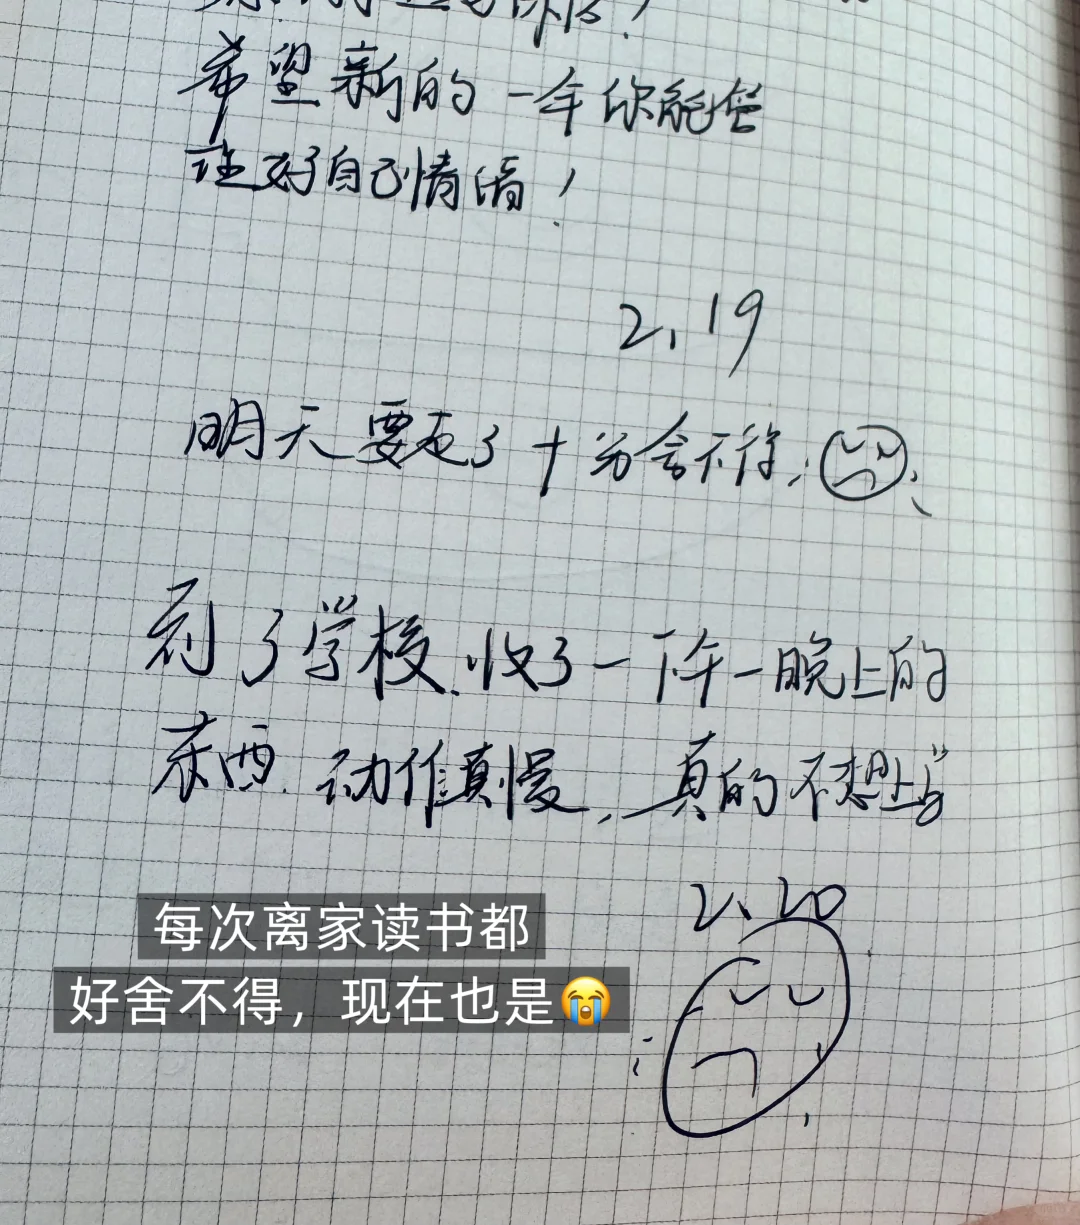 希望新的一年你能管
理好自己情绪！
2.19
明天要走了十分舍不得.
到了学校.收了一下午一晚上的
东西.动作真慢,真的不想上学
2.20
每次离家读书都
好舍不得，现在也是😭